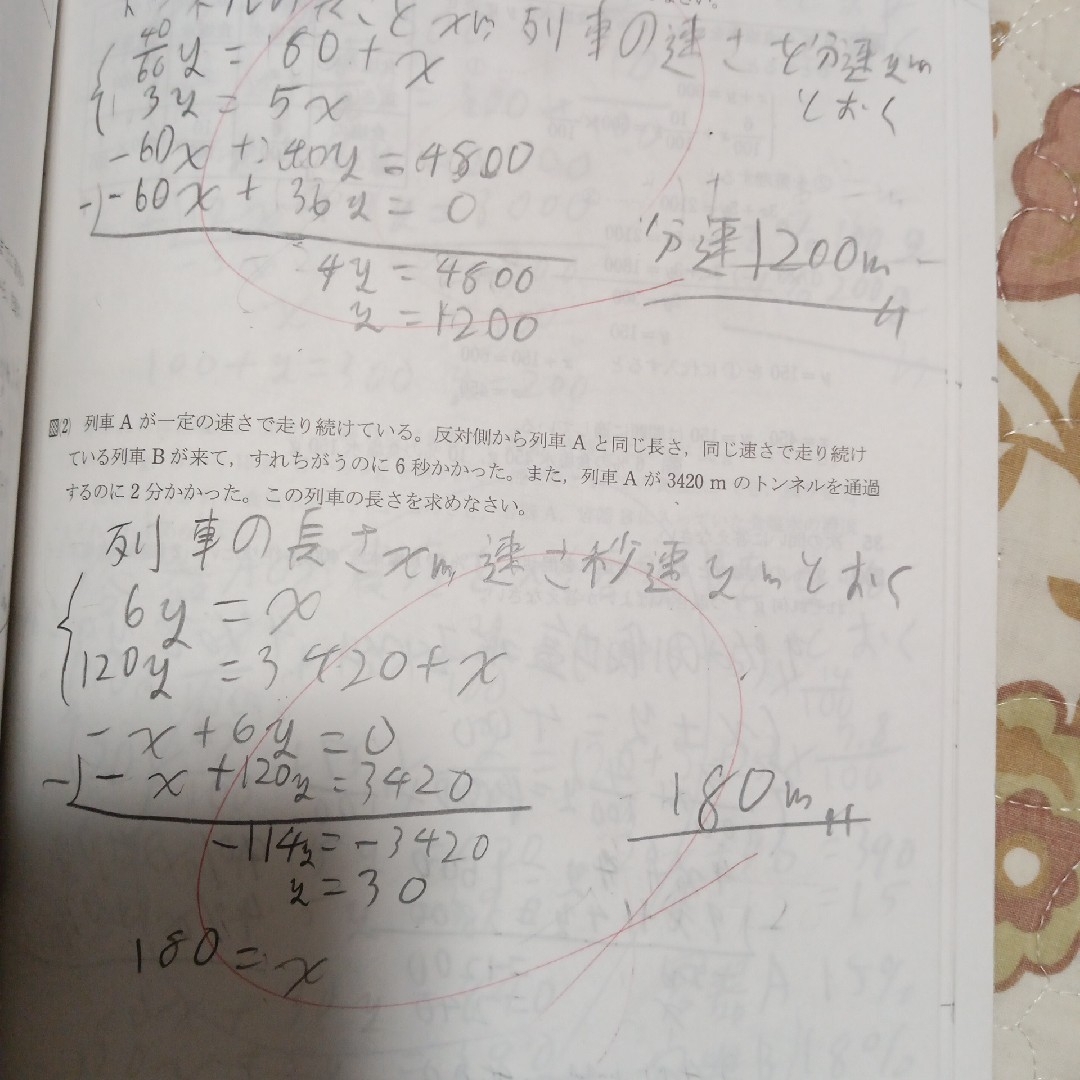 長さを xm 列車の速さを分速ym
とおく
40/60 y = 160 + x
3y = 5x
-60x + 40y = 4800
-) -60x + 36y = 0
4y = 4800
y = 1200
分速1200m
(2) 列車Aが一定の速さで走り続けている。反対側から列車Aと同じ長さ，同じ速さで走り続け
ている列車Bが来て，すれちがうのに6秒かかった。また，列車Aが3420 mのトンネルを通過
するのに2分かかった。この列車の長さを求めなさい。
列車の長さxm, 速さ秒速ymとおく
6y = x
120y = 3420 + x
-x + 6y = 0
-) -x + 120y = 3420
-114y = -3420
y = 30
180m
180 = x